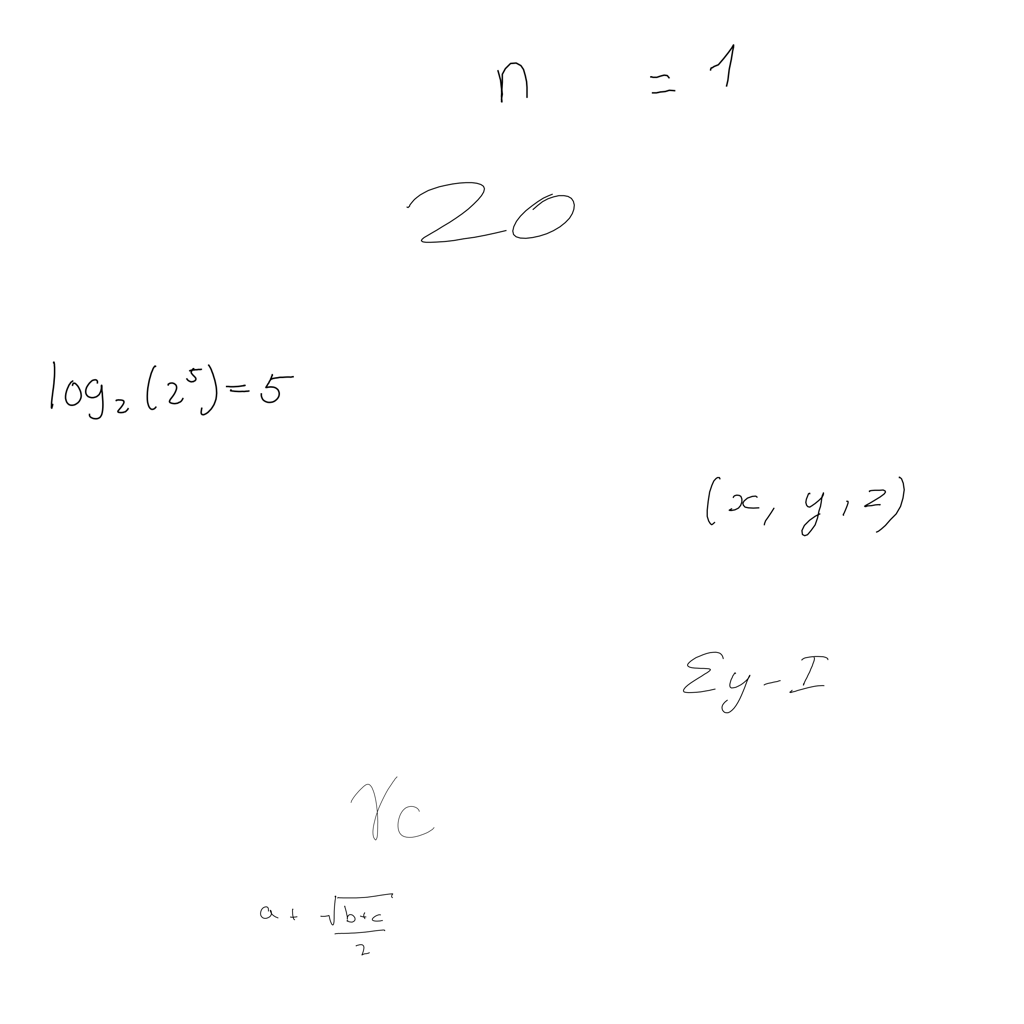 n = 1
20
log₂(2⁵)=5
(x, y, z)
Σy-I
γc
a + √(b+c)/2